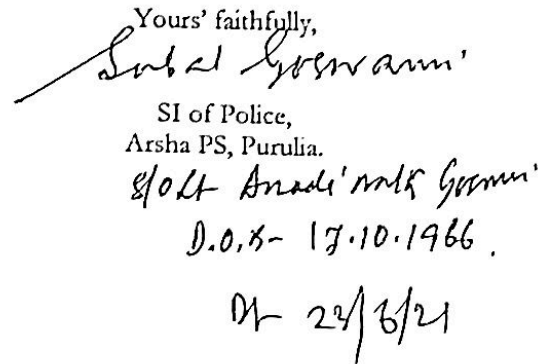 Yours' faithfully,
Subal Goswami
SI of Police,
Arsha PS, Purulia.
S/O Lt Anadi nath Goswami
D.O.B- 17.10.1966.
Dt- 23/6/21